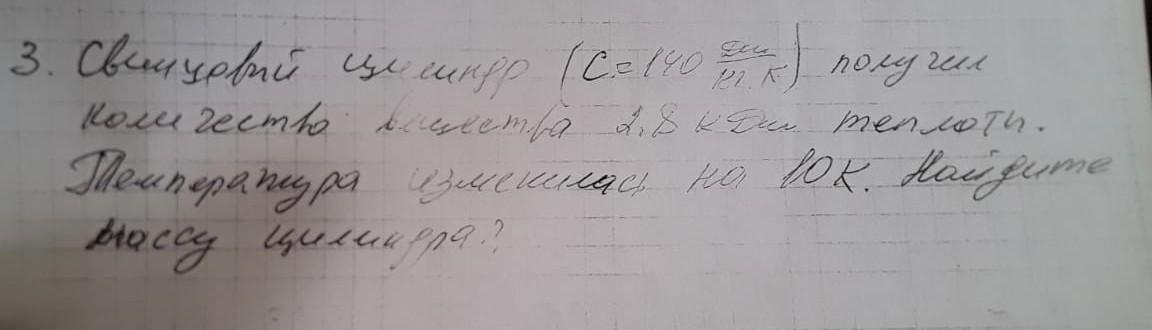 3. Свинцовый цилиндр (C=140 Дж/кг.К) получил
количество вещества 2,8 кДж теплоты.
Температура изменилась на 10К. Найдите
массу цилиндра?